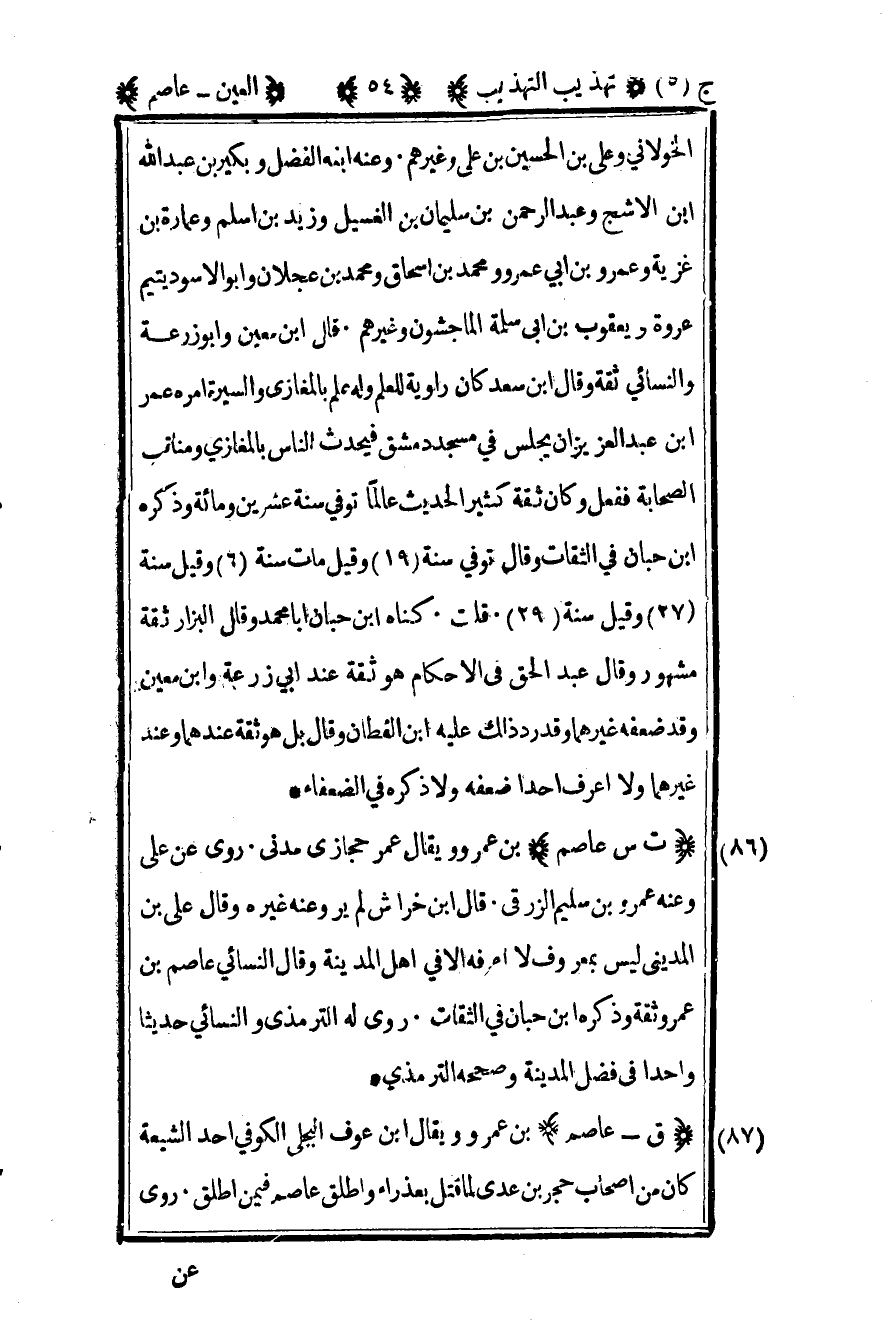 ج (٥) تهذيب التهذيب ٥٤ العين ـ عاصم
الخولاني وعلى بن الحسين بن على وغيرهم ٠ وعنه ابنه الفضل و بكير بن عبدالله
ابن الاشج وعبدالرحمن بن سليمان بن الغسيل وزيد بن اسلم وعمارة بن
غزية وعمرو بن ابي عمرو ومحمد بن اسحاق ومحمد بن عجلان وابو الاسود يتيم
عروة ويعقوب بن ابى سلمة الماجشون وغيرهم ٠ قال ابن معين وابوزرعة
والنسائي ثقة وقال ابن سعد كان راوية للعلم وله علم بالمغازى والسيرة امره عمر
ابن عبدالعزيزان يجلس في مسجد دمشق فيحدث الناس بالمغازي ومناقب
الصحابة ففعل وكان ثقة كثير الحديث عالمًا توفي سنة عشرين ومائة وذكره
ابن حبان في الثقات وقال توفي سنة (١٩) وقيل مات سنة (٦) وقيل سنة
(٢٧) وقيل سنة (٢٩) ٠ قلت ٠ كناه ابن حبان ابا محمد وقال البزار ثقة
مشهور وقال عبد الحق فى الاحكام هو ثقة عند ابي زرعة وابن معين
وقد ضعفه غيرهما وقد رد ذالك عليه ابن القطان وقال بل هو ثقة عندهما وعند
غيرهما ولا اعرف احدا ضعفه ولا ذكره في الضعفاء *
(٨٦) ت س عاصم بن عمرو ويقال عمر حجازى مدنى ٠ روى عن على
وعنه عمرو بن سليم الزرقى ٠ قال ابن خراش لم يرو عنه غيره وقال على بن
المدينى ليس بمعروف لا اعرفه الا في اهل المدينة وقال النسائي عاصم بن
عمرو ثقة وذكره ابن حبان في الثقات ٠ روى له الترمذى والنسائي حديثا
واحدا فى فضل المدينة وصححه الترمذي *
(٨٧) ق ـ عاصم بن عمرو و يقال ابن عوف البجلى الكوفي احد الشيعة
كان من اصحاب حجر بن عدى لما قتل بعذراء واطلق عاصم فيمن اطلق ٠ روى
عن